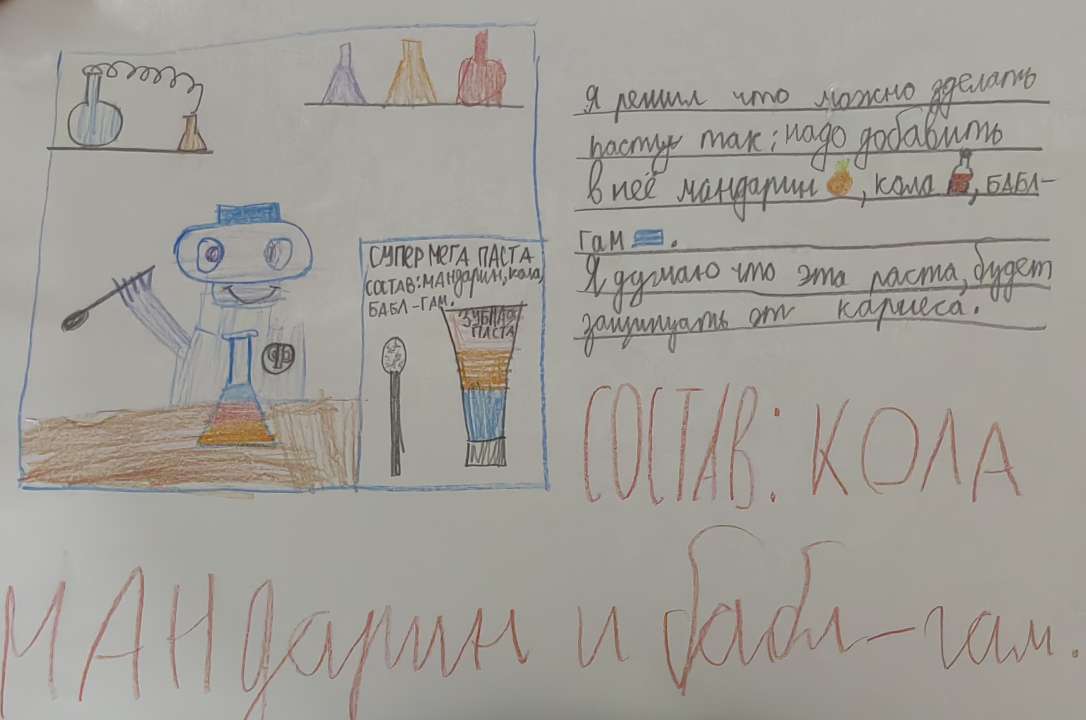 СУПЕР МЕГА ПАСТА
СОСТАВ: МАНДАРИН, КОЛА,
БАБЛ-ГАМ.
ЗУБНАЯ
ПАСТА
Я решил что можно зделать
пасту так: надо добавить
в неё мандарин, кола, БАБЛ-
гам.
Я думаю что эта паста, будет
защищать от кариеса.
СОСТАВ: КОЛА
МАНдарин и бабл-гам.